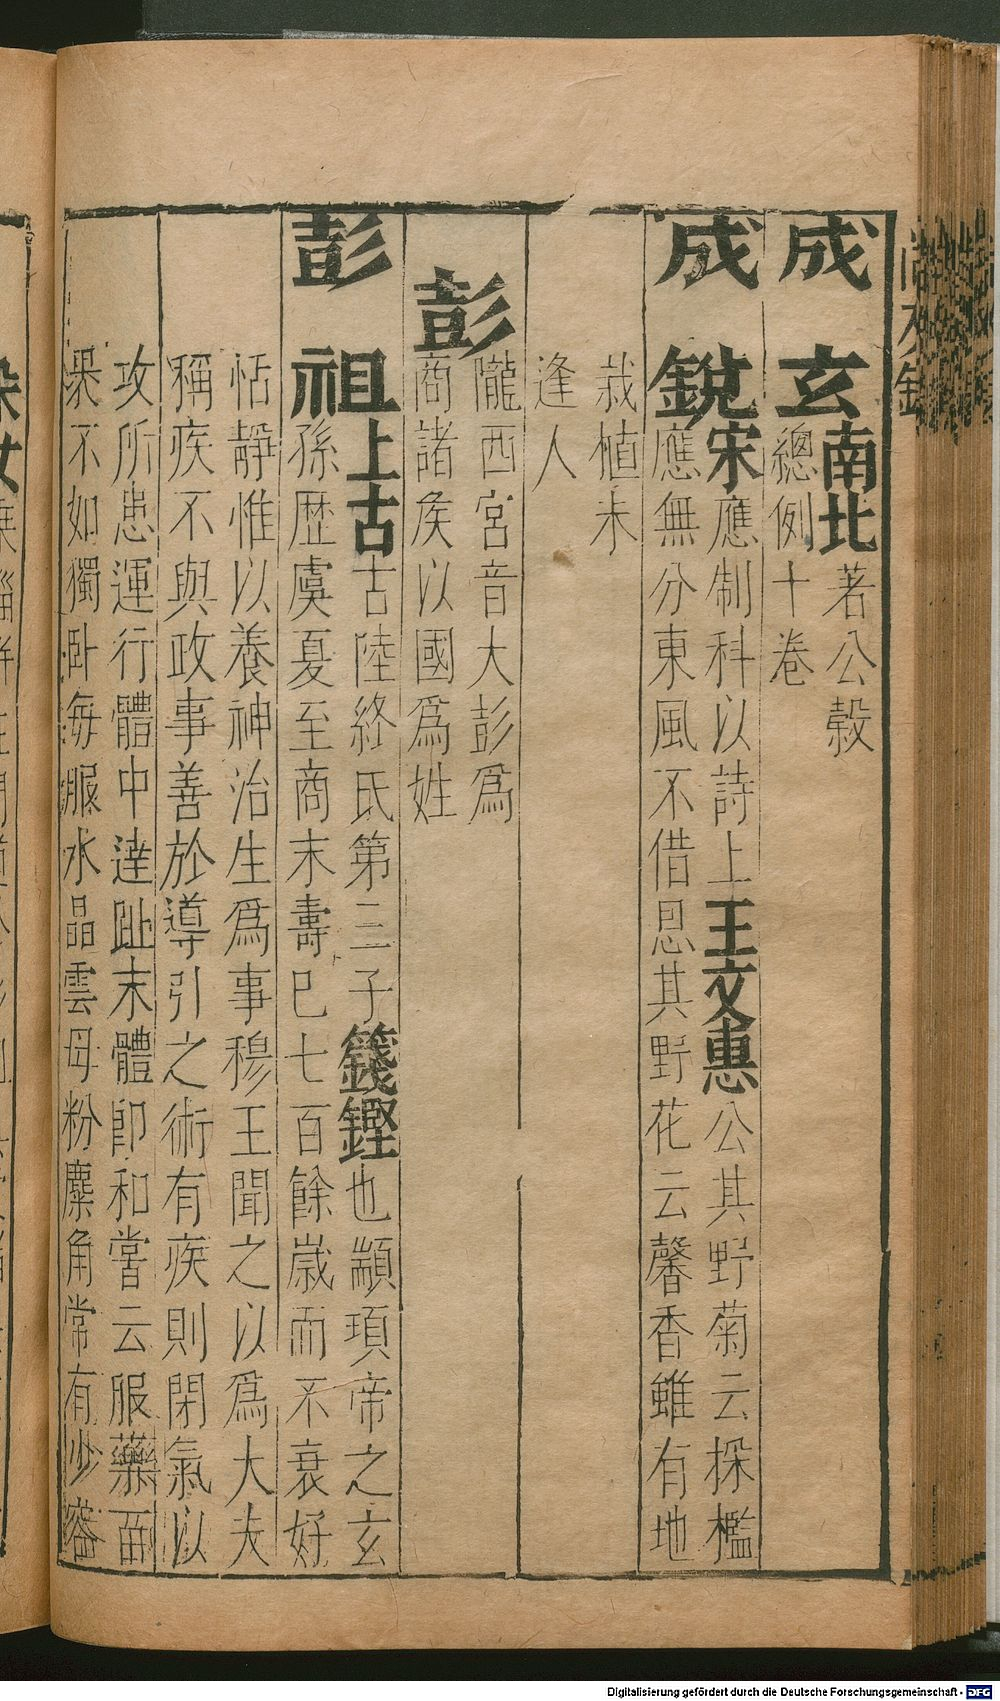 成 玄南北著公穀
總例十卷
成 銳宋應制科以詩上王文惠公其野菊云採檻
應無分東風不借恩其野花云馨香雖有地
栽植未
逢人
彭隴西宮音大彭爲
商諸矦以國爲姓
彭 祖上古古陸終氏第三子籛鏗也顓頊帝之玄
孫歷虞夏至商末壽巳七百餘歲而不衰好
恬靜惟以養神治生爲事穆王聞之以爲大夫
稱疾不與政事善於導引之術有疾則閉氣以
攻所患運行體中達趾末體卽和嘗云服藥百
不如獨臥每服水晶雲母粉麋角常有少容
Digitalisierung gefördert durch die Deutsche Forschungsgemeinschaft - DFG